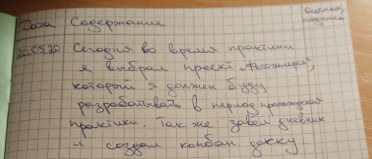 Дата Содержание Оценка, подпись
25.05.20 Сегодня во время практики
я выбрал проект
который я должен буду
разрабатывать в период прохождения
практики. Так же завел дневник
и создал канбан доску